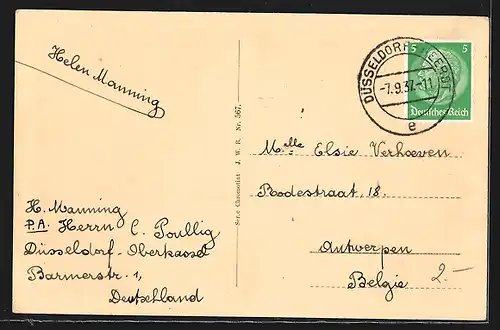 Helen Manning
H. Manning
P.A. Herrn C. Poullig
Düsseldorf-Oberkassel
Barmerstr. 1,
Deutschland
Serie Chromolist J. W. B. Nr. 567.
DÜSSELDORF-HEERDT
-7.9.37.-11
e
5 5
Deutsches Reich
Melle Elsie Verhoeven
Bodestraat 18.
Antwerpen
Belgie
2.-